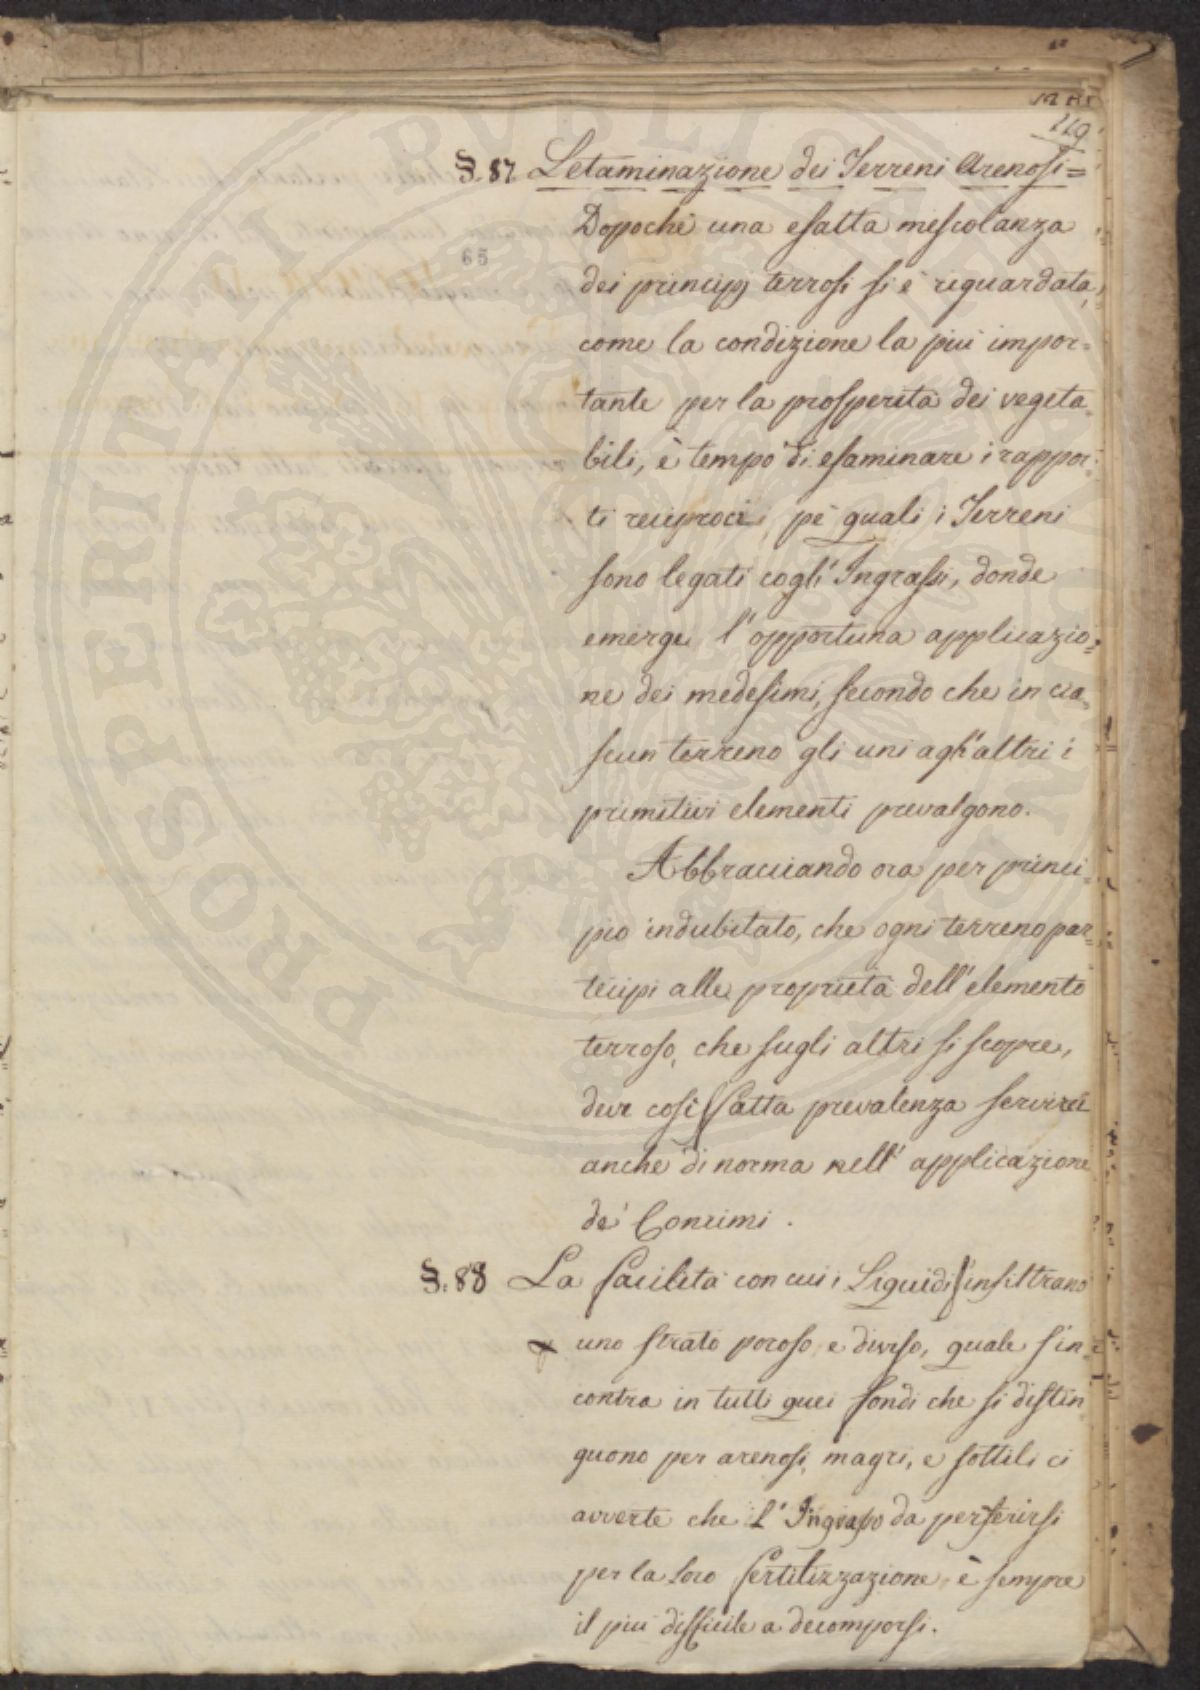 119
§. 87 Letaminazione dei Terreni Arenosi=
Dopochè una esatta mescolanza
65
dei principj terrosi si è riguardata,
come la condizione la più impor=
tante per la prosperità dei vegeta=
bili, è tempo di esaminare i rappor=
ti reciproci, pe' quali i Terreni
sono legati cogl' Ingrassi, donde
emerge l'opportuna applicazio=
ne dei medesimi, secondo che in cia=
scun terreno gli uni agl'altri i
primitivi elementi prevalgono.
Abbracciando ora per princi=
pio indubitato, che ogni terreno par=
tecipi alle proprietà dell'elemento
terroso, che sugli altri si scopre,
deve così fatta prevalenza servirci
anche di norma nell' applicazione
de' Concimi.
§. 88 La facilità con cui i Liquidi infiltrano
uno strato poroso, e diviso, quale s'in=
contra in tutti quei fondi che si distin
guono per arenosi, magri, e sottili ci
avverte che l'Ingrasso da perferirsi
per la loro fertilizzazione, è sempre
il più difficile a decomporsi.
PROSPERITATI PUBLICAE